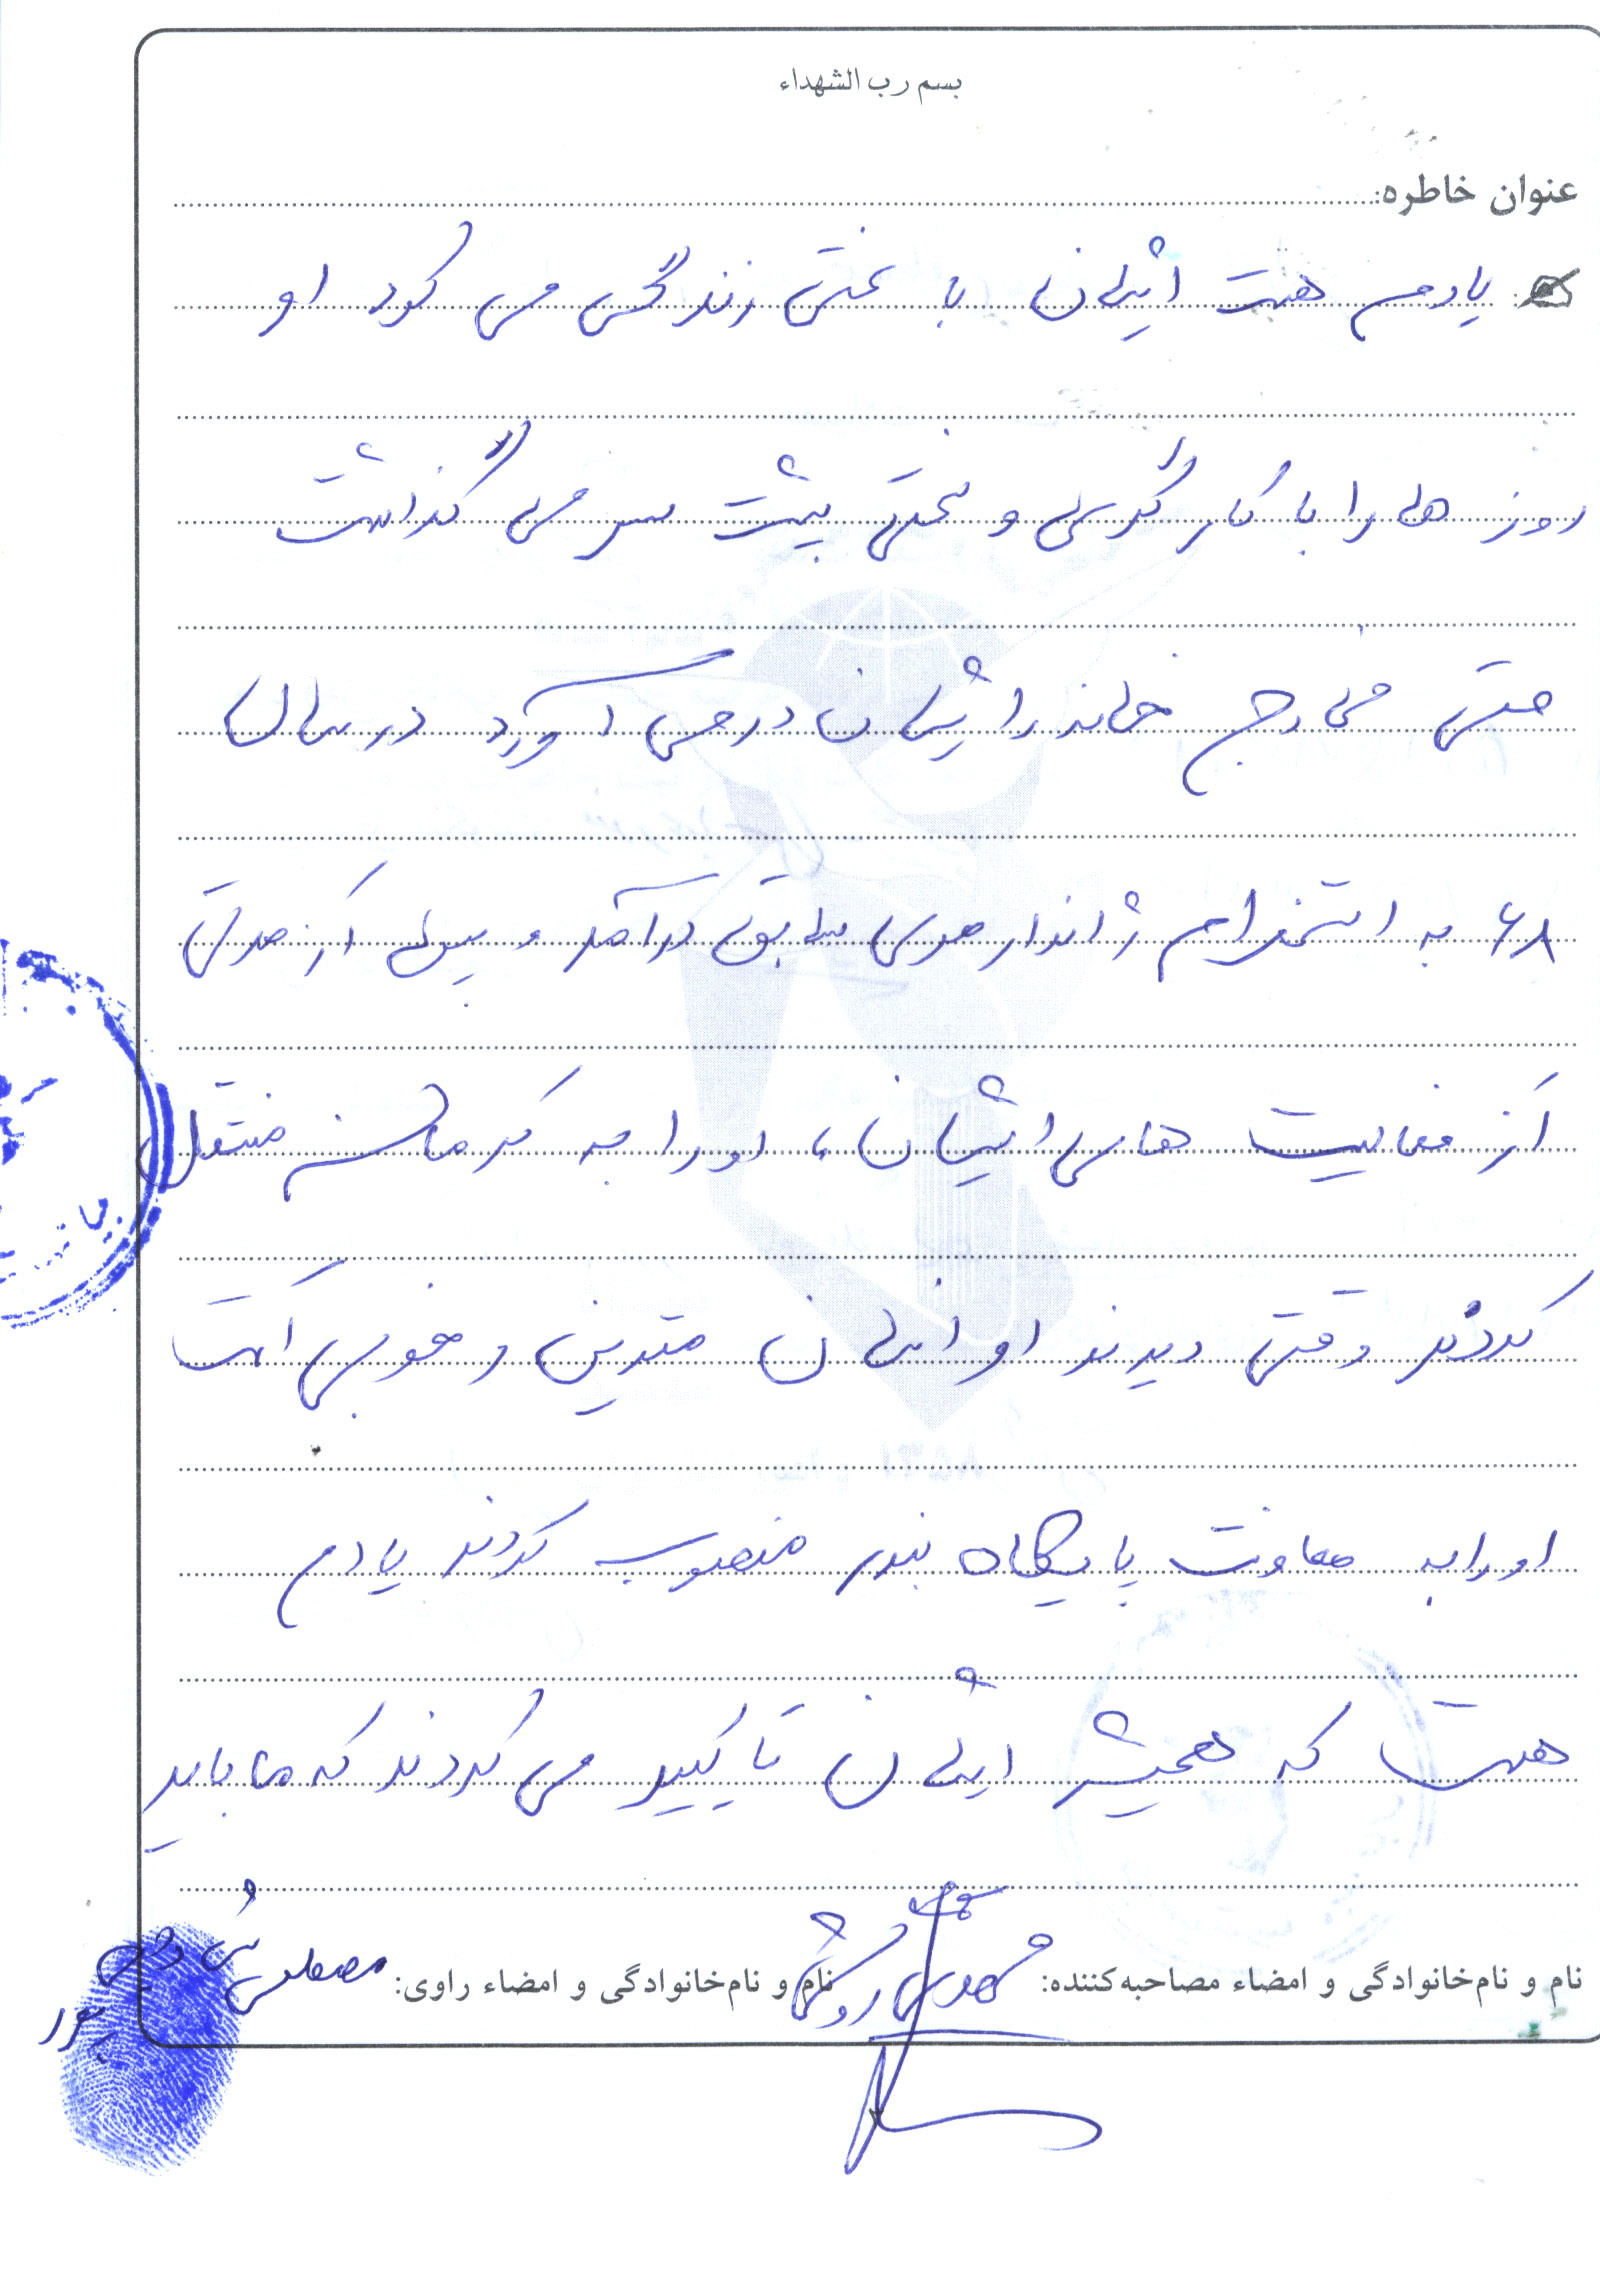 بسم رب الشهداء
عنوان خاطره:
یادم هست ایشان با سختی زندگی می کرد او
روز ها را با کارگری و سختی پشت سر می گذاشت
حتی مخارج خانه را ایشان در می آورد در سال
۶۸ به استخدام ژاندارمری سابق درآمد و پس از مدتی
از فعالیت های ایشان، او را به کرمانشاه منتقل
کردند وقتی دیدند او انسان متدین و خوبی است
او را به معاونت پایگاه بندر منصوب کردند یادم
هست که همیشه ایشان تاکیید می کردند که ما باید
نام و نام‌خانوادگی و امضاء مصاحبه‌کننده: مهدی روشن
نام و نام‌خانوادگی و امضاء راوی: مصطفی پور